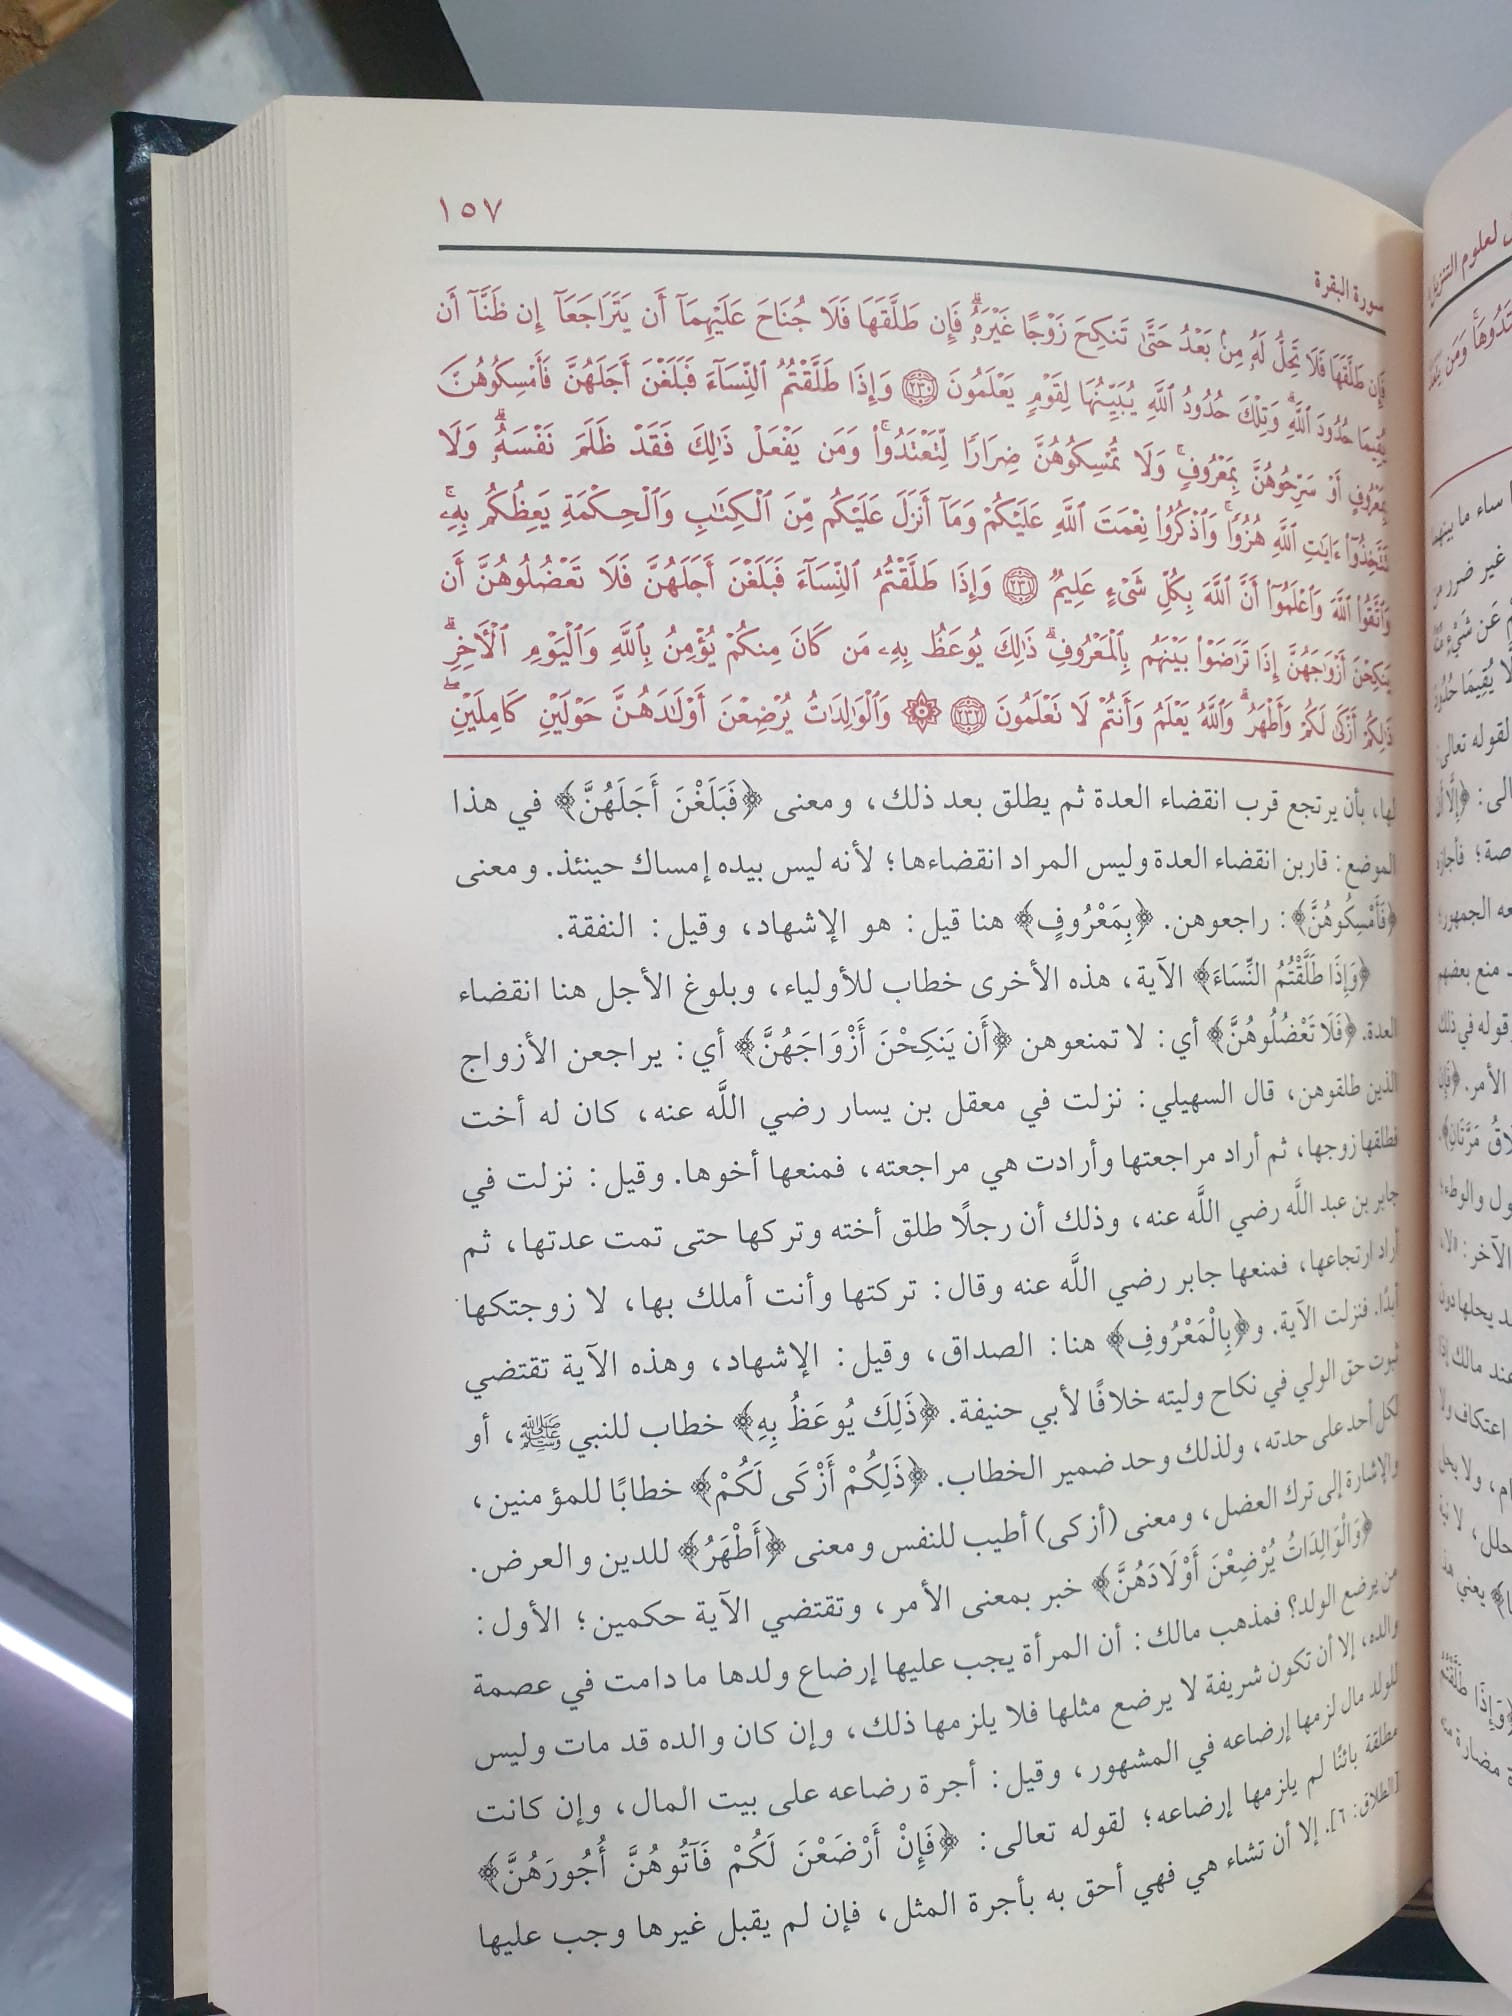 ١٥٧
سورة البقرة
فَإِن طَلَّقَهَا فَلَا تَحِلُّ لَهُۥ مِنۢ بَعْدُ حَتَّىٰ تَنكِحَ زَوْجًا غَيْرَهُۥۗ فَإِن طَلَّقَهَا فَلَا جُنَاحَ عَلَيْهِمَآ أَن يَتَرَاجَعَآ إِن ظَنَّآ أَن
يُقِيمَا حُدُودَ ٱللَّهِۗ وَتِلْكَ حُدُودُ ٱللَّهِ يُبَيِّنُهَا لِقَوْمٍ يَعْلَمُونَ ٢٣٠ وَإِذَا طَلَّقْتُمُ ٱلنِّسَآءَ فَبَلَغْنَ أَجَلَهُنَّ فَأَمْسِكُوهُنَّ
بِمَعْرُوفٍ أَوْ سَرِّحُوهُنَّ بِمَعْرُوفٍۚ وَلَا تُمْسِكُوهُنَّ ضِرَارًا لِّتَعْتَدُوا۟ۚ وَمَن يَفْعَلْ ذَٰلِكَ فَقَدْ ظَلَمَ نَفْسَهُۥۗ وَلَا
تَتَّخِذُوٓا۟ ءَايَٰتِ ٱللَّهِ هُزُوًاۚ وَٱذْكُرُوا۟ نِعْمَتَ ٱللَّهِ عَلَيْكُمْ وَمَآ أَنزَلَ عَلَيْكُم مِّنَ ٱلْكِتَٰبِ وَٱلْحِكْمَةِ يَعِظُكُم بِهِۦۚ
وَٱتَّقُوا۟ ٱللَّهَ وَٱعْلَمُوٓا۟ أَنَّ ٱللَّهَ بِكُلِّ شَىْءٍ عَلِيمٌ ٢٣١ وَإِذَا طَلَّقْتُمُ ٱلنِّسَآءَ فَبَلَغْنَ أَجَلَهُنَّ فَلَا تَعْضُلُوهُنَّ أَن
يَنكِحْنَ أَزْوَٰجَهُنَّ إِذَا تَرَٰضَوْا۟ بَيْنَهُم بِٱلْمَعْرُوفِۗ ذَٰلِكَ يُوعَظُ بِهِۦ مَن كَانَ مِنكُمْ يُؤْمِنُ بِٱللَّهِ وَٱلْيَوْمِ ٱلْءَاخِرِۗ
ذَٰلِكُمْ أَزْكَىٰ لَكُمْ وَأَطْهَرُۗ وَٱللَّهُ يَعْلَمُ وَأَنتُمْ لَا تَعْلَمُونَ ٢٣٢ ۞ وَٱلْوَٰلِدَٰتُ يُرْضِعْنَ أَوْلَٰدَهُنَّ حَوْلَيْنِ كَامِلَيْنِۖ
لها، بأن يرتجع قرب انقضاء العدة ثم يطلق بعد ذلك، ومعنى ﴿فَبَلَغْنَ أَجَلَهُنَّ﴾ في هذا
الموضع: قاربن انقضاء العدة وليس المراد انقضاءها؛ لأنه ليس بيده إمساك حينئذ. ومعنى
﴿فَأَمْسِكُوهُنَّ﴾: راجعوهن. ﴿بِمَعْرُوفٍ﴾ هنا قيل: هو الإشهاد، وقيل: النفقة.
﴿وَإِذَا طَلَّقْتُمُ النِّسَاءَ﴾ الآية، هذه الأخرى خطاب للأولياء، وبلوغ الأجل هنا انقضاء
العدة. ﴿فَلَا تَعْضُلُوهُنَّ﴾ أي: لا تمنعوهن ﴿أَن يَنكِحْنَ أَزْوَاجَهُنَّ﴾ أي: يراجعن الأزواج
الذين طلقوهن، قال السهيلي: نزلت في معقل بن يسار رضي اللَّه عنه، كان له أخت
فطلقها زوجها، ثم أراد مراجعتها وأرادت هي مراجعته، فمنعها أخوها. وقيل: نزلت في
جابر بن عبد اللَّه رضي اللَّه عنه، وذلك أن رجلًا طلق أخته وتركها حتى تمت عدتها، ثم
أراد ارتجاعها، فمنعها جابر رضي اللَّه عنه وقال: تركتها وأنت أملك بها، لا زوجتكها
أبدًا. فنزلت الآية. و﴿بِالْمَعْرُوفِ﴾ هنا: الصداق، وقيل: الإشهاد، وهذه الآية تقتضي
ثبوت حق الولي في نكاح وليته خلافًا لأبي حنيفة. ﴿ذَلِكَ يُوعَظُ بِهِ﴾ خطاب للنبي ﷺ، أو
لكل أحد على حدته، ولذلك وحد ضمير الخطاب. ﴿ذَلِكُمْ أَزْكَى لَكُمْ﴾ خطابًا للمؤمنين،
والإشارة إلى ترك العضل، ومعنى (أزكى) أطيب للنفس ومعنى ﴿أَطْهَرُ﴾ للدين والعرض.
﴿وَالْوَالِدَاتُ يُرْضِعْنَ أَوْلَادَهُنَّ﴾ خبر بمعنى الأمر، وتقتضي الآية حكمين؛ الأول:
من يرضع الولد؟ فمذهب مالك: أن المرأة يجب عليها إرضاع ولدها ما دامت في عصمة
والده، إلا أن تكون شريفة لا يرضع مثلها فلا يلزمها ذلك، وإن كان والده قد مات وليس
للولد مال لزمها إرضاعه في المشهور، وقيل: أجرة رضاعه على بيت المال، وإن كانت
مطلقة بائنًا لم يلزمها إرضاعه؛ لقوله تعالى: ﴿فَإِنْ أَرْضَعْنَ لَكُمْ فَآتُوهُنَّ أُجُورَهُنَّ﴾
[الطلاق: ٦]. إلا أن تشاء هي فهي أحق به بأجرة المثل، فإن لم يقبل غيرها وجب عليها